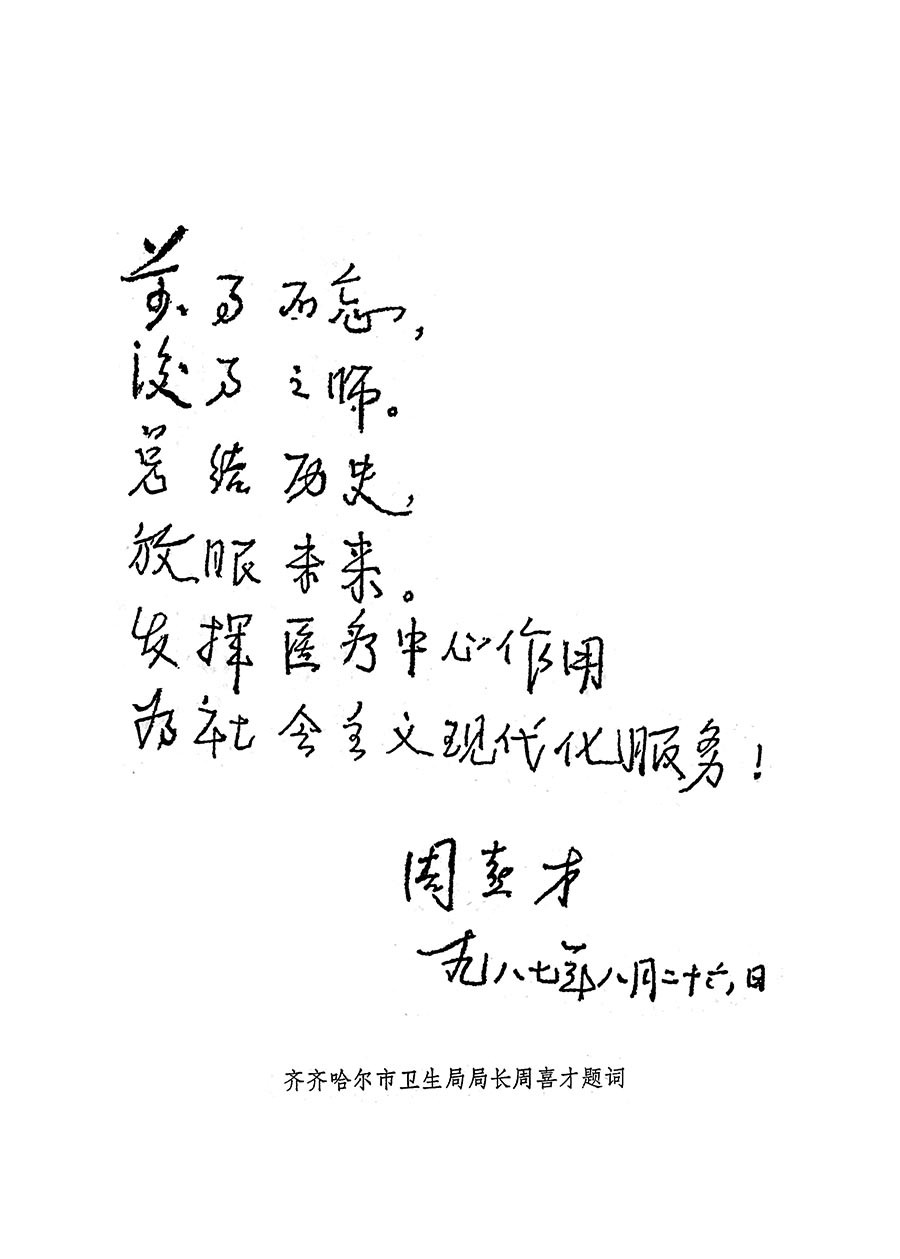 前事不忘,
後事之师。
总结历史,
放眼未来。
发挥医疗中心作用
为社会主义现代化服务!
周喜才
一九八七年八月二十六日
齐齐哈尔市卫生局局长周喜才题词